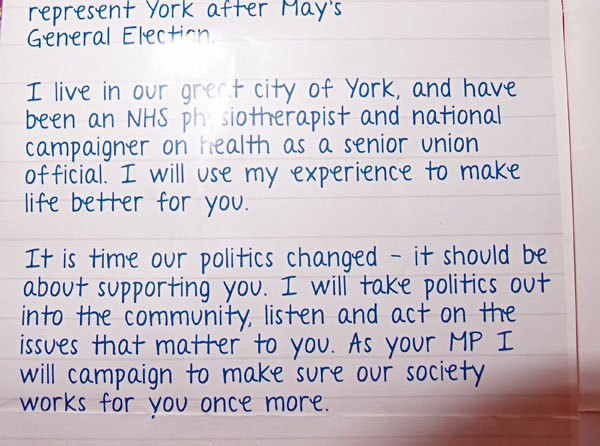 represent York after May's
General Election.
I live in our great city of York, and have
been an NHS physiotherapist and national
campaigner on health as a senior union
official. I will use my experience to make
life better for you.
It is time our politics changed - it should be
about supporting you. I will take politics out
into the community, listen and act on the
issues that matter to you. As your MP I
will campaign to make sure our society
works for you once more.